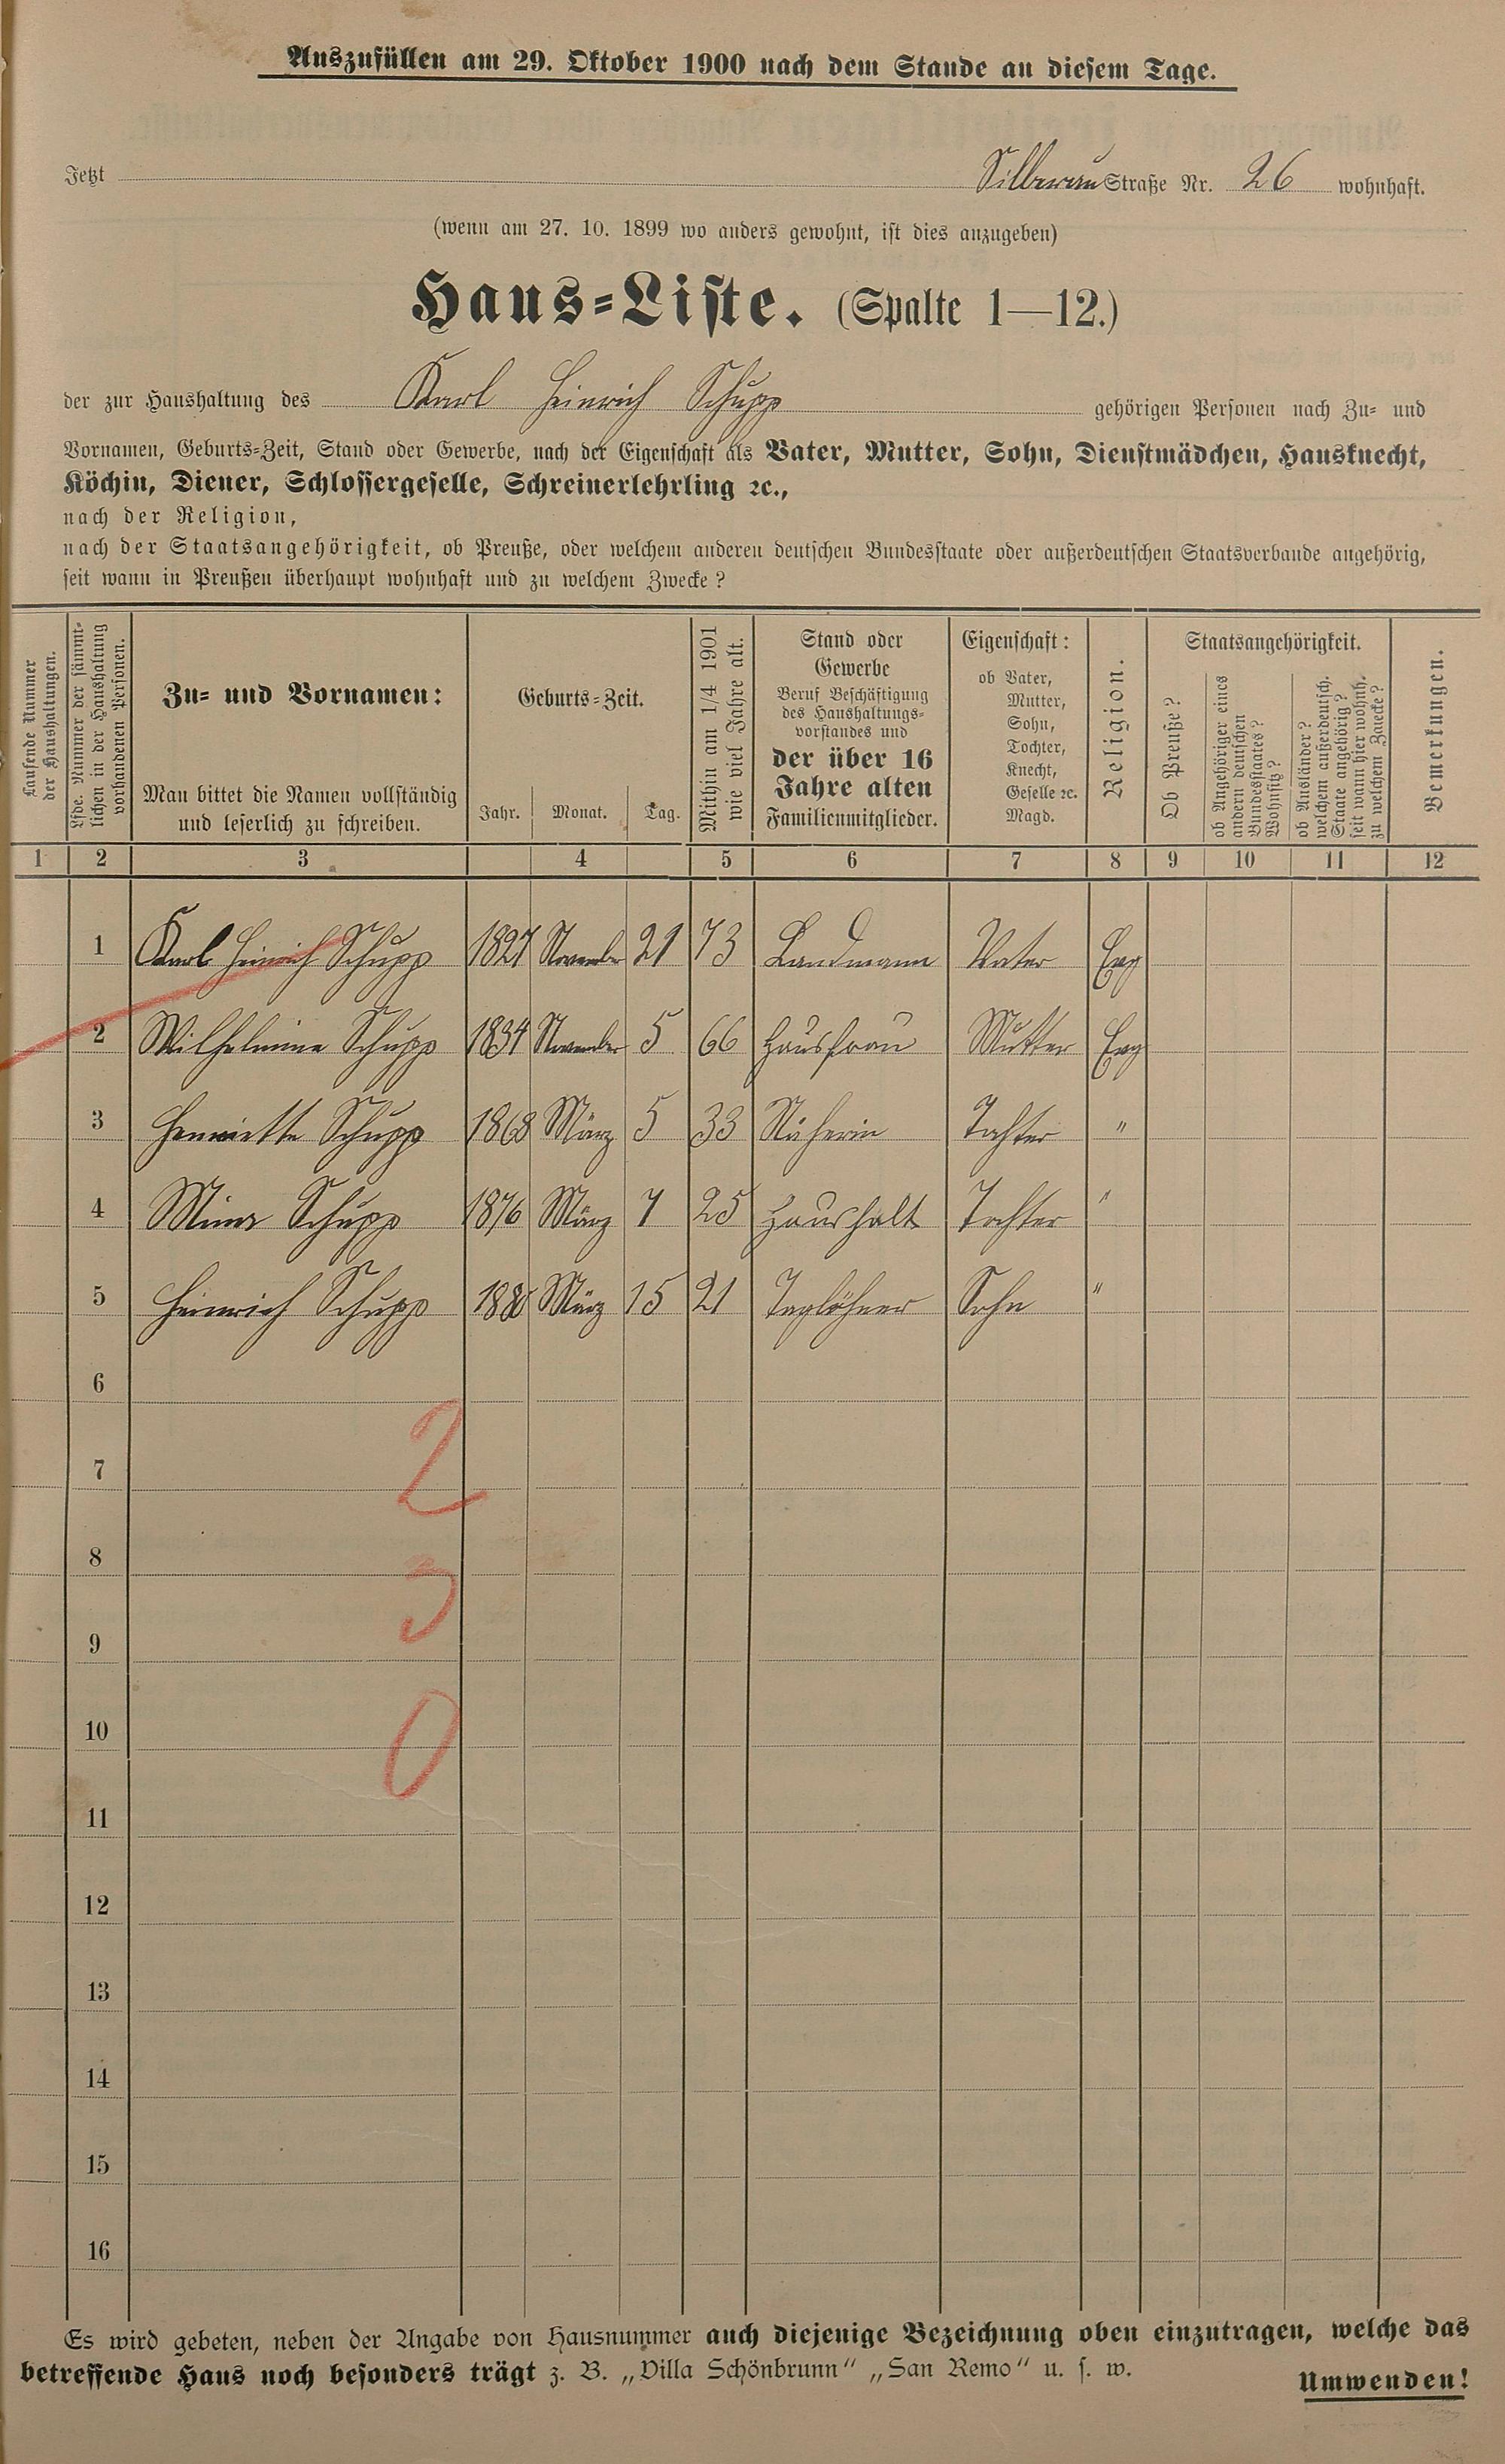 Auszufüllen am 29. Oktober 1900 nach dem Stande an diesem Tage.
Jetzt Straße Nr. 26 wohnhaft.
(wenn am 27. 10. 1899 wo anders gewohnt, ist dies anzugeben)
Haus-Liste. (Spalte 1—12.)
der zur Haushaltung des Karl Heinrich Schupp gehörigen Personen nach Zu- und
Vornamen, Geburts-Zeit, Stand oder Gewerbe, nach der Eigenschaft als Vater, Mutter, Sohn, Dienstmädchen, Hausknecht,
Köchin, Diener, Schlossergeselle, Schreinerlehrling ꝛc.,
nach der Religion,
nach der Staatsangehörigkeit, ob Preuße, oder welchem anderen deutschen Bundesstaate oder außerdeutschen Staatsverbande angehörig,
seit wann in Preußen überhaupt wohnhaft und zu welchem Zwecke?
Laufende Nummer
der Haushaltungen.
Lfde. Nummer der sämmt-
lichen in der Haushaltung
vorhandenen Personen.
Zu- und Vornamen:
Man bittet die Namen vollständig
und leserlich zu schreiben.
Geburts-Zeit.
Jahr. Monat. Tag.
Mithin am 1/4 1901
wie viel Jahre alt.
Stand oder
Gewerbe
Beruf Beschäftigung
des Haushaltungs-
vorstandes und
der über 16
Jahre alten
Familienmitglieder.
Eigenschaft:
ob Vater,
Mutter,
Sohn,
Tochter,
Knecht,
Geselle ꝛc.
Magd.
Religion.
Staatsangehörigkeit.
Ob Preuße?
ob Angehöriger eines
andern deutschen
Bundesstaates?
Wohnsitz?
ob Ausländer?
welchem außerdeutsch.
Staate angehörig?
seit wann hier wohnh.
zu welchem Zwecke?
Bemerkungen.
1 2 3 4 5 6 7 8 9 10 11 12
1 Karl Heinrich Schupp 1827 November 21 73 Landmann Vater Evg
2 Wilhelmine Schupp 1834 November 5 66 Hausfrau Mutter Evg
3 Henriette Schupp 1868 März 5 33 Näherin Tochter "
4 Mina Schupp 1876 März 7 25 Haushalt Tochter "
5 Heinrich Schupp 1880 März 15 21 Taglöhner Sohn "
6
7
2
8
3
9
10
0
11
12
13
14
15
16
Es wird gebeten, neben der Angabe von Hausnummer auch diejenige Bezeichnung oben einzutragen, welche das
betreffende Haus noch besonders trägt z. B. „Villa Schönbrunn“ „San Remo“ u. s. w.
Umwenden!